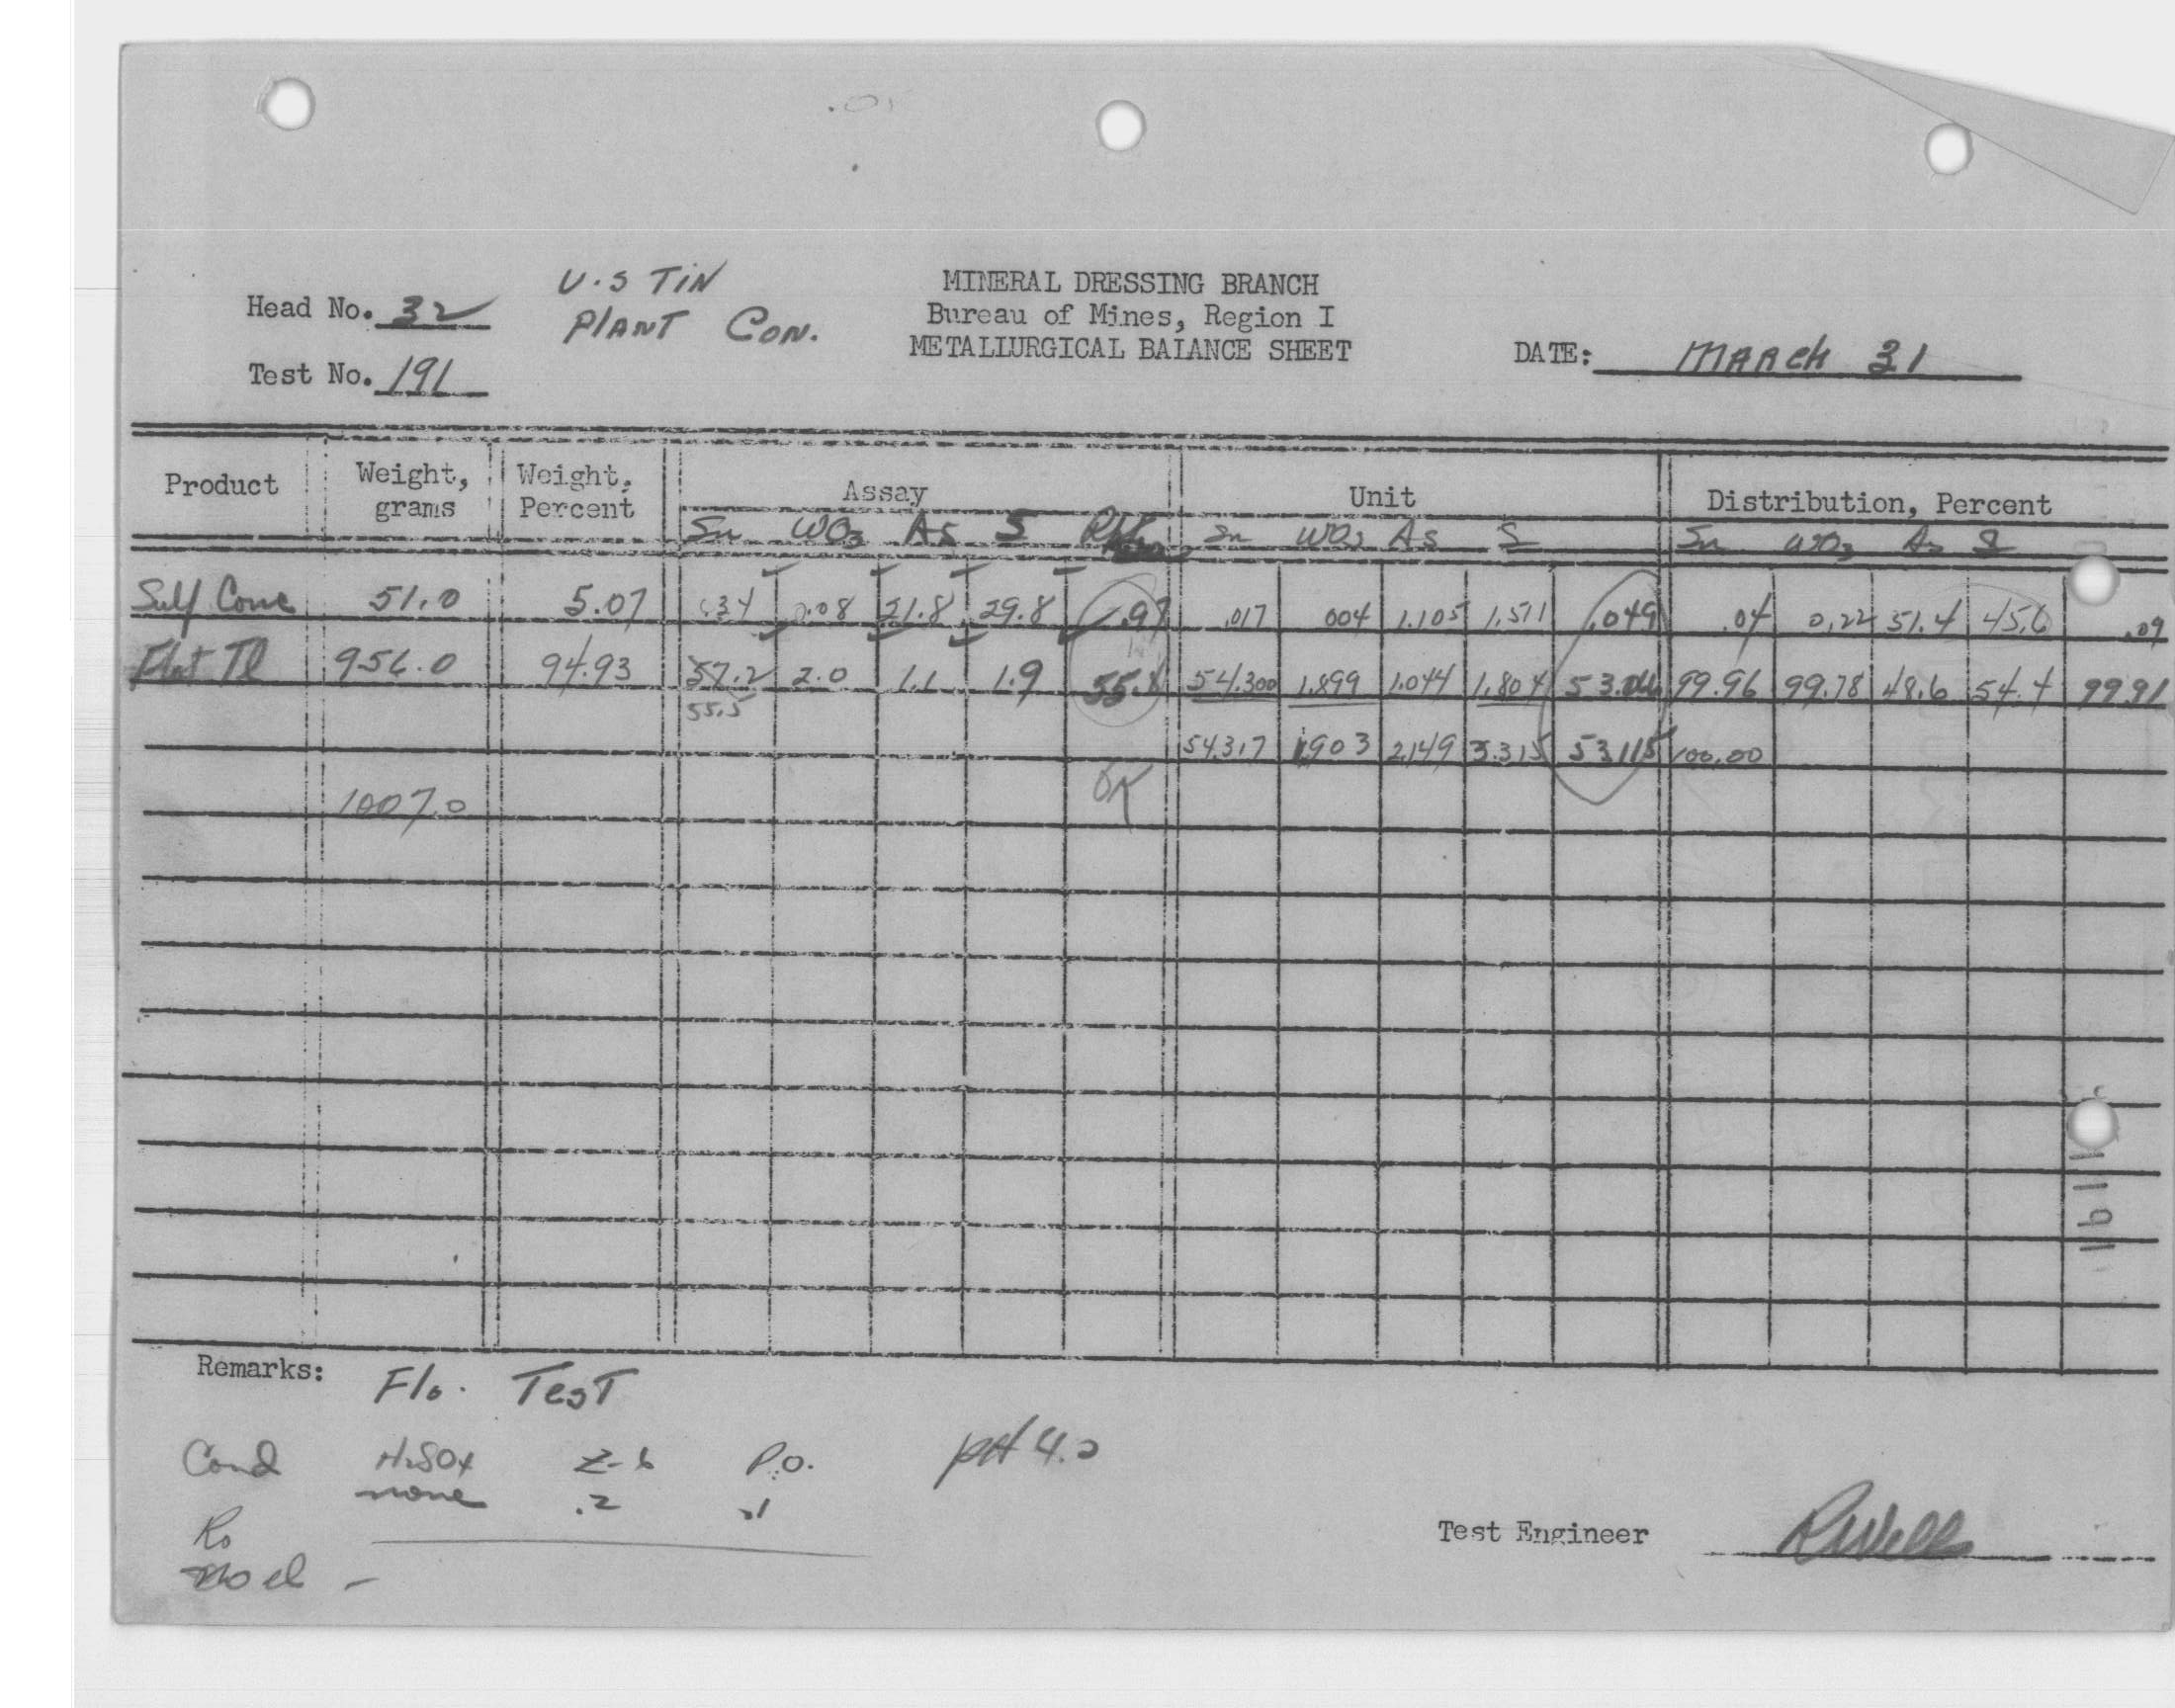 .01
U.S TIN
PLANT CON.
Head No. 32
Test No. 191
MINERAL DRESSING BRANCH
Bureau of Mines, Region I
METALLURGICAL BALANCE SHEET
DATE: MARCH 31
Product Weight, grams Weight, Percent Assay Unit Distribution, Percent
Sn WO3 As S Sn WO3 As S Sn WO3 As S
Sulf Conc 51.0 5.07 .34 0.08 21.8 29.8 .97 .017 004 1.105 1.511 .049 .04 0.22 51.4 45.6 .09
Flot Tl 956.0 94.93 57.2 2.0 1.1 1.9 55.8 54.300 1.899 1.044 1.804 99.96 99.78 48.6 54.4 99.91
55.5
54.317 1.903 2.149 3.315 53.115 100.00
OK
1007.0
191
Remarks: Flo. Test
Cond H2SO4 Z-6 P.O. pH 4.0
none .2 .1
Ro
No cl -
Test Engineer